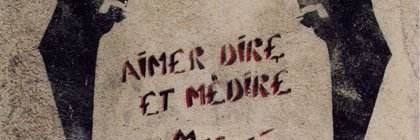 AIMER DIRE
ET MÉDIRE